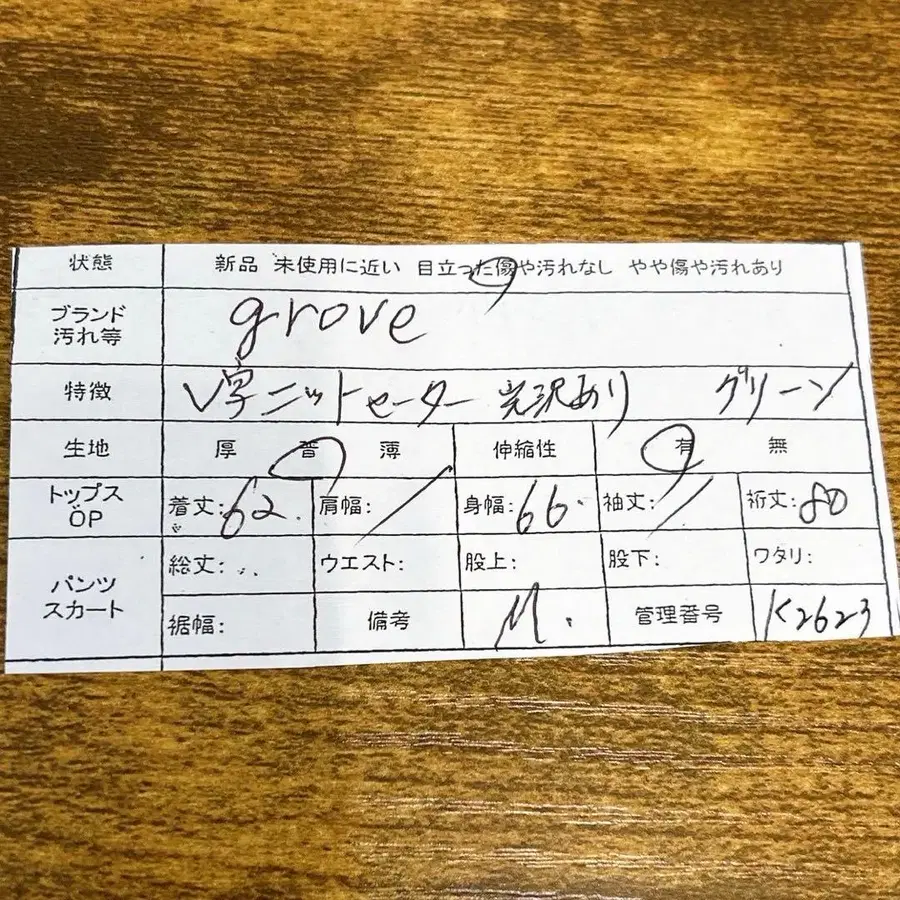 状態 新品 未使用に近い 目立った傷や汚れなし やや傷や汚れあり
ブランド
汚れ等 grove
特徴 V字ニットセーター 光沢あり グリーン
生地 厚 普 薄 伸縮性 有 無
トップス
OP 着丈:62. 肩幅:/ 身幅:66. 袖丈:/ 裄丈:80
パンツ
スカート 総丈: ウエスト: 股上: 股下: ワタリ:
裾幅: 備考 M. 管理番号 K2623